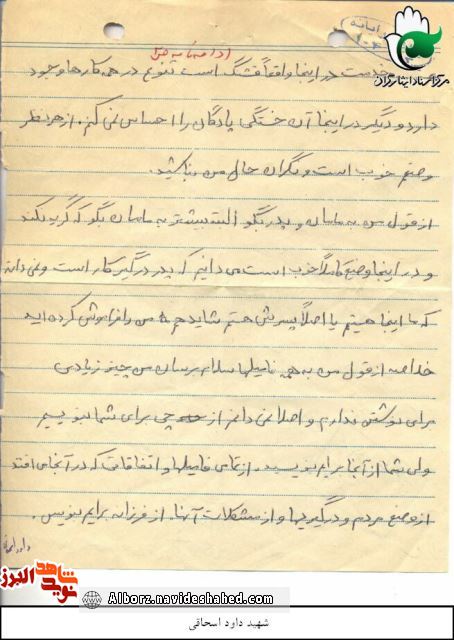 ادامه نامه
خدمت در اینجا واقعاً قشنگ است تنوع در همه کارها وجود
دارد و دیگر در اینجا آن خستگی پادگان را احساس نمی کنم. از هر نظر
وضعم خوب است و نگران حال من نباشید.
از قول من به مامان و پدر بگو البته بیشتر به مامان بگو که گریه نکند
و در اینجا وضع کاملاً خوب است می دانیم که پدر درگیر کار است و نمی داند
که ما اینجا هستیم یا اصلاً پسرش هستم شاید هم من را فراموش کرده اید
خلاصه از قول من به همه فامیلها سلام برسان من چیز زیادی
برای نوشتن ندارم و اصلا نمی دانم از چی برای شما بنویسم
ولی شما از آنجا برایم بنویسید. از تمامی فامیلها و اتفاقات که در آنجا می افتد
از وضع مردم و درگیریها و از مشکلات آنها. از فرزانه برایم بنویس.
مرکز اسناد ایثارگران
نوید شاهد البرز
Alborz.navideshahed.com
شهید داود اسحاقی